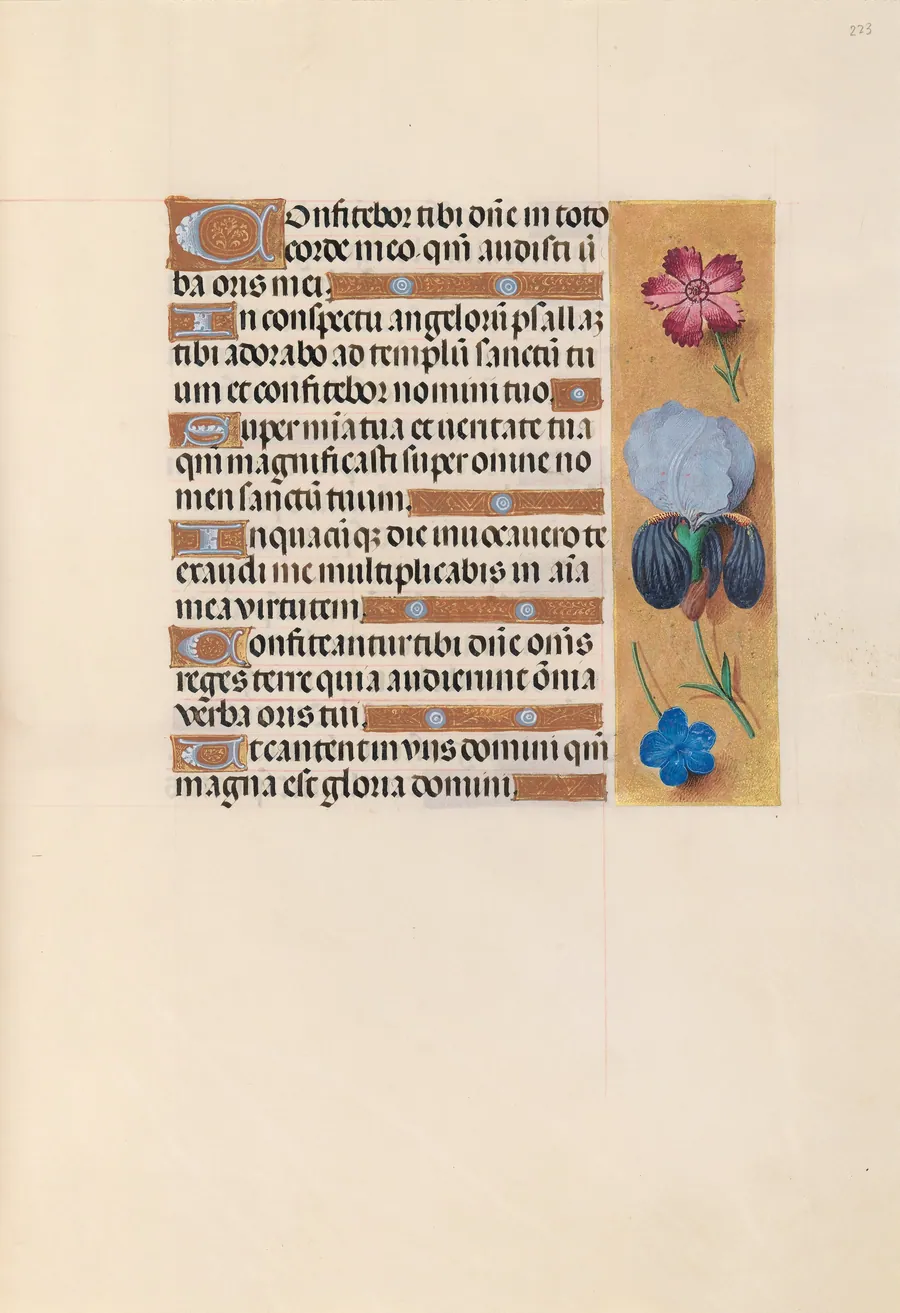 223
Confitebor tibi dñe in toto
corde meo. qm̃ audisti ũ
ba oris mei.
In conspectu angelorũ psallaꝫ
tibi adorabo ad templũ sanctũ tu
um et confitebor nomini tuo.
Super mĩa tua et ueritate tua
qm̃ magnificasti super omne no
men sanctũ tuum.
In quacũqꝫ die inuocauero te
exaudi me multiplicabis in aĩa
mea virtutem.
Confiteantur tibi dñe om̃s
reges terre quia audierunt õnia
verba oris tui.
Et cantent in viis domini qm̃
magna est gloria domini.